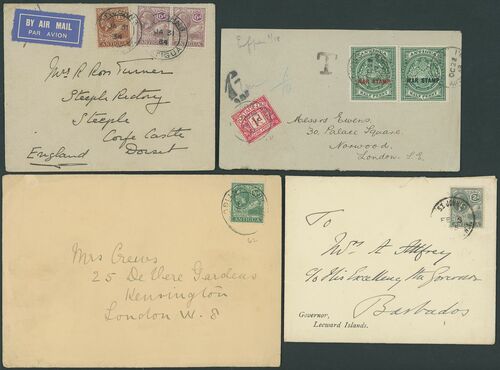 BY AIR MAIL
PAR AVION
JA 31
34
Mrs R Ross Turner
Steeple Rectory
Steeple
Corfe Castle
Dorset
England
T
ANTIGUA
ANTIGUA
WAR STAMP
WAR STAMP
HALF PENNY
HALF PENNY
Messrs Ewens,
30, Palace Square,
Norwood,
London. S.E.
ANTIGUA
Mrs Crews
25 De Vere Gardens
Kensington
London W. 8
ST. JOHN'S
To
Mrs A
To His Excellency the Governor
Barbados
Governor,
Leeward Islands.